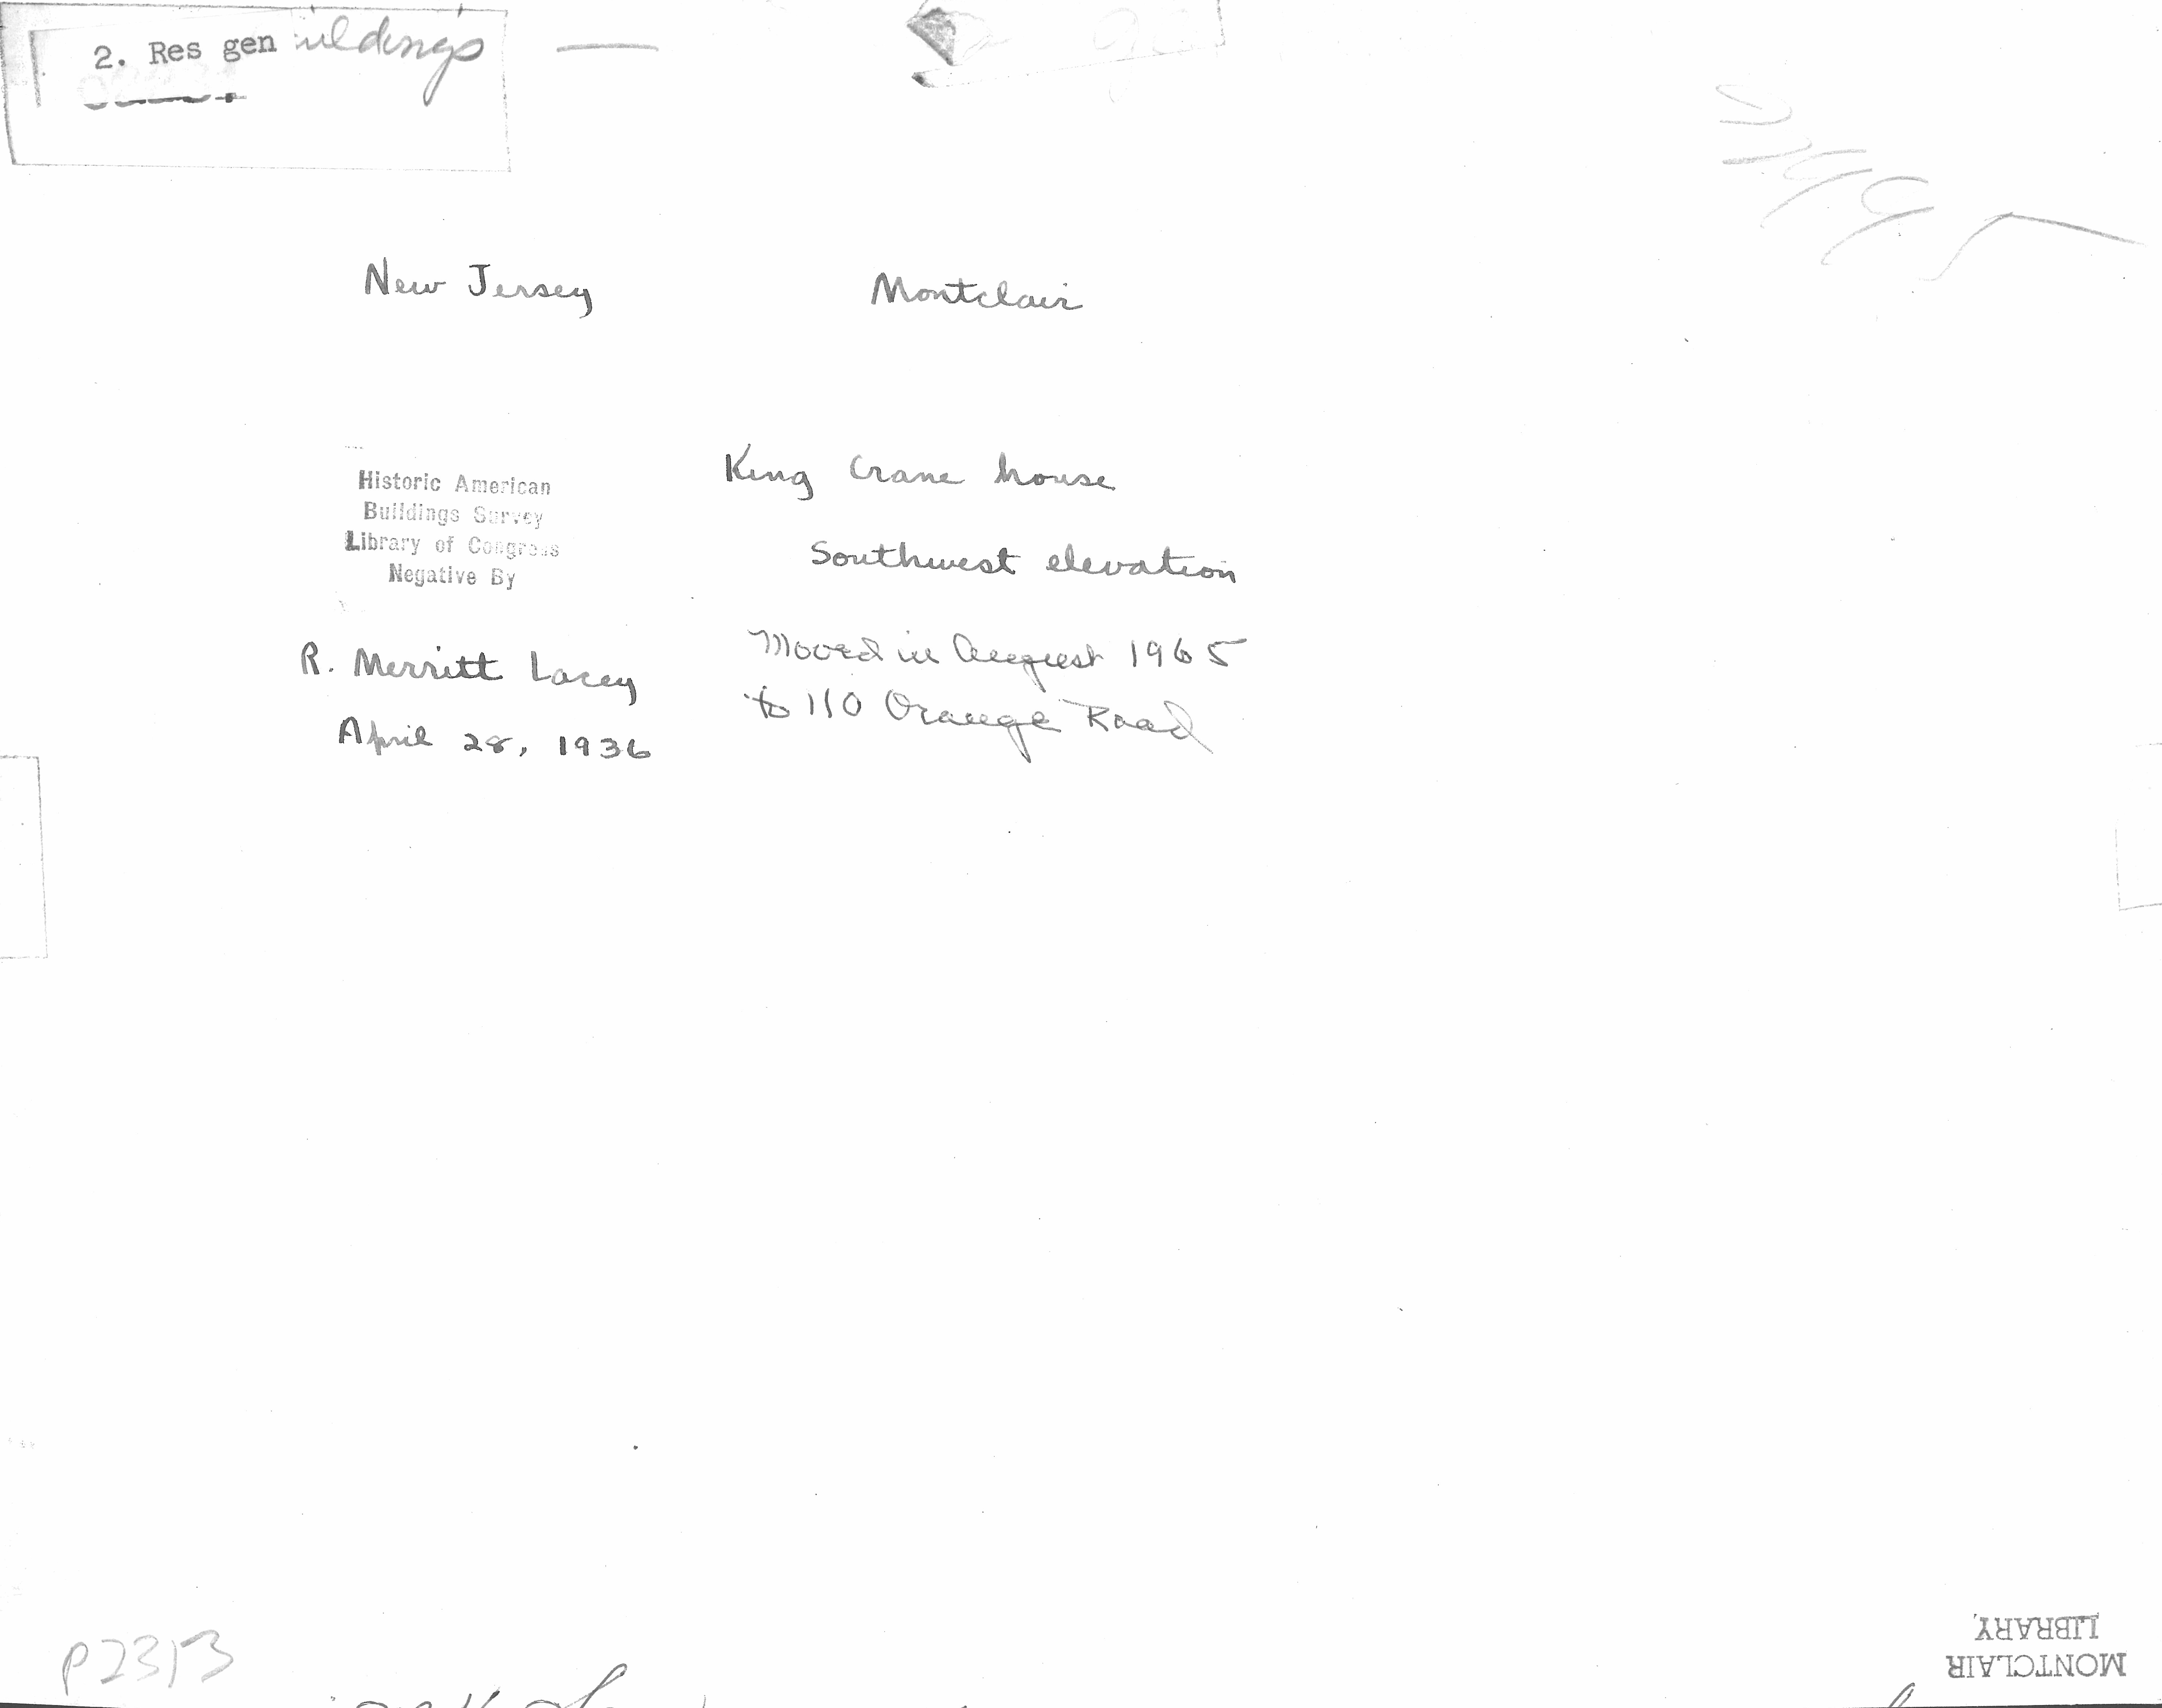 2. Res gen
New Jersey Montclair
Historic American
Buildings Survey
Library of Congress
Negative By
R. Merritt Lacey
April 28, 1936
King Crane house
Southwest elevation
Moved in August 1965
to 110 Orange Road
P2313
MONTCLAIR
LIBRARY